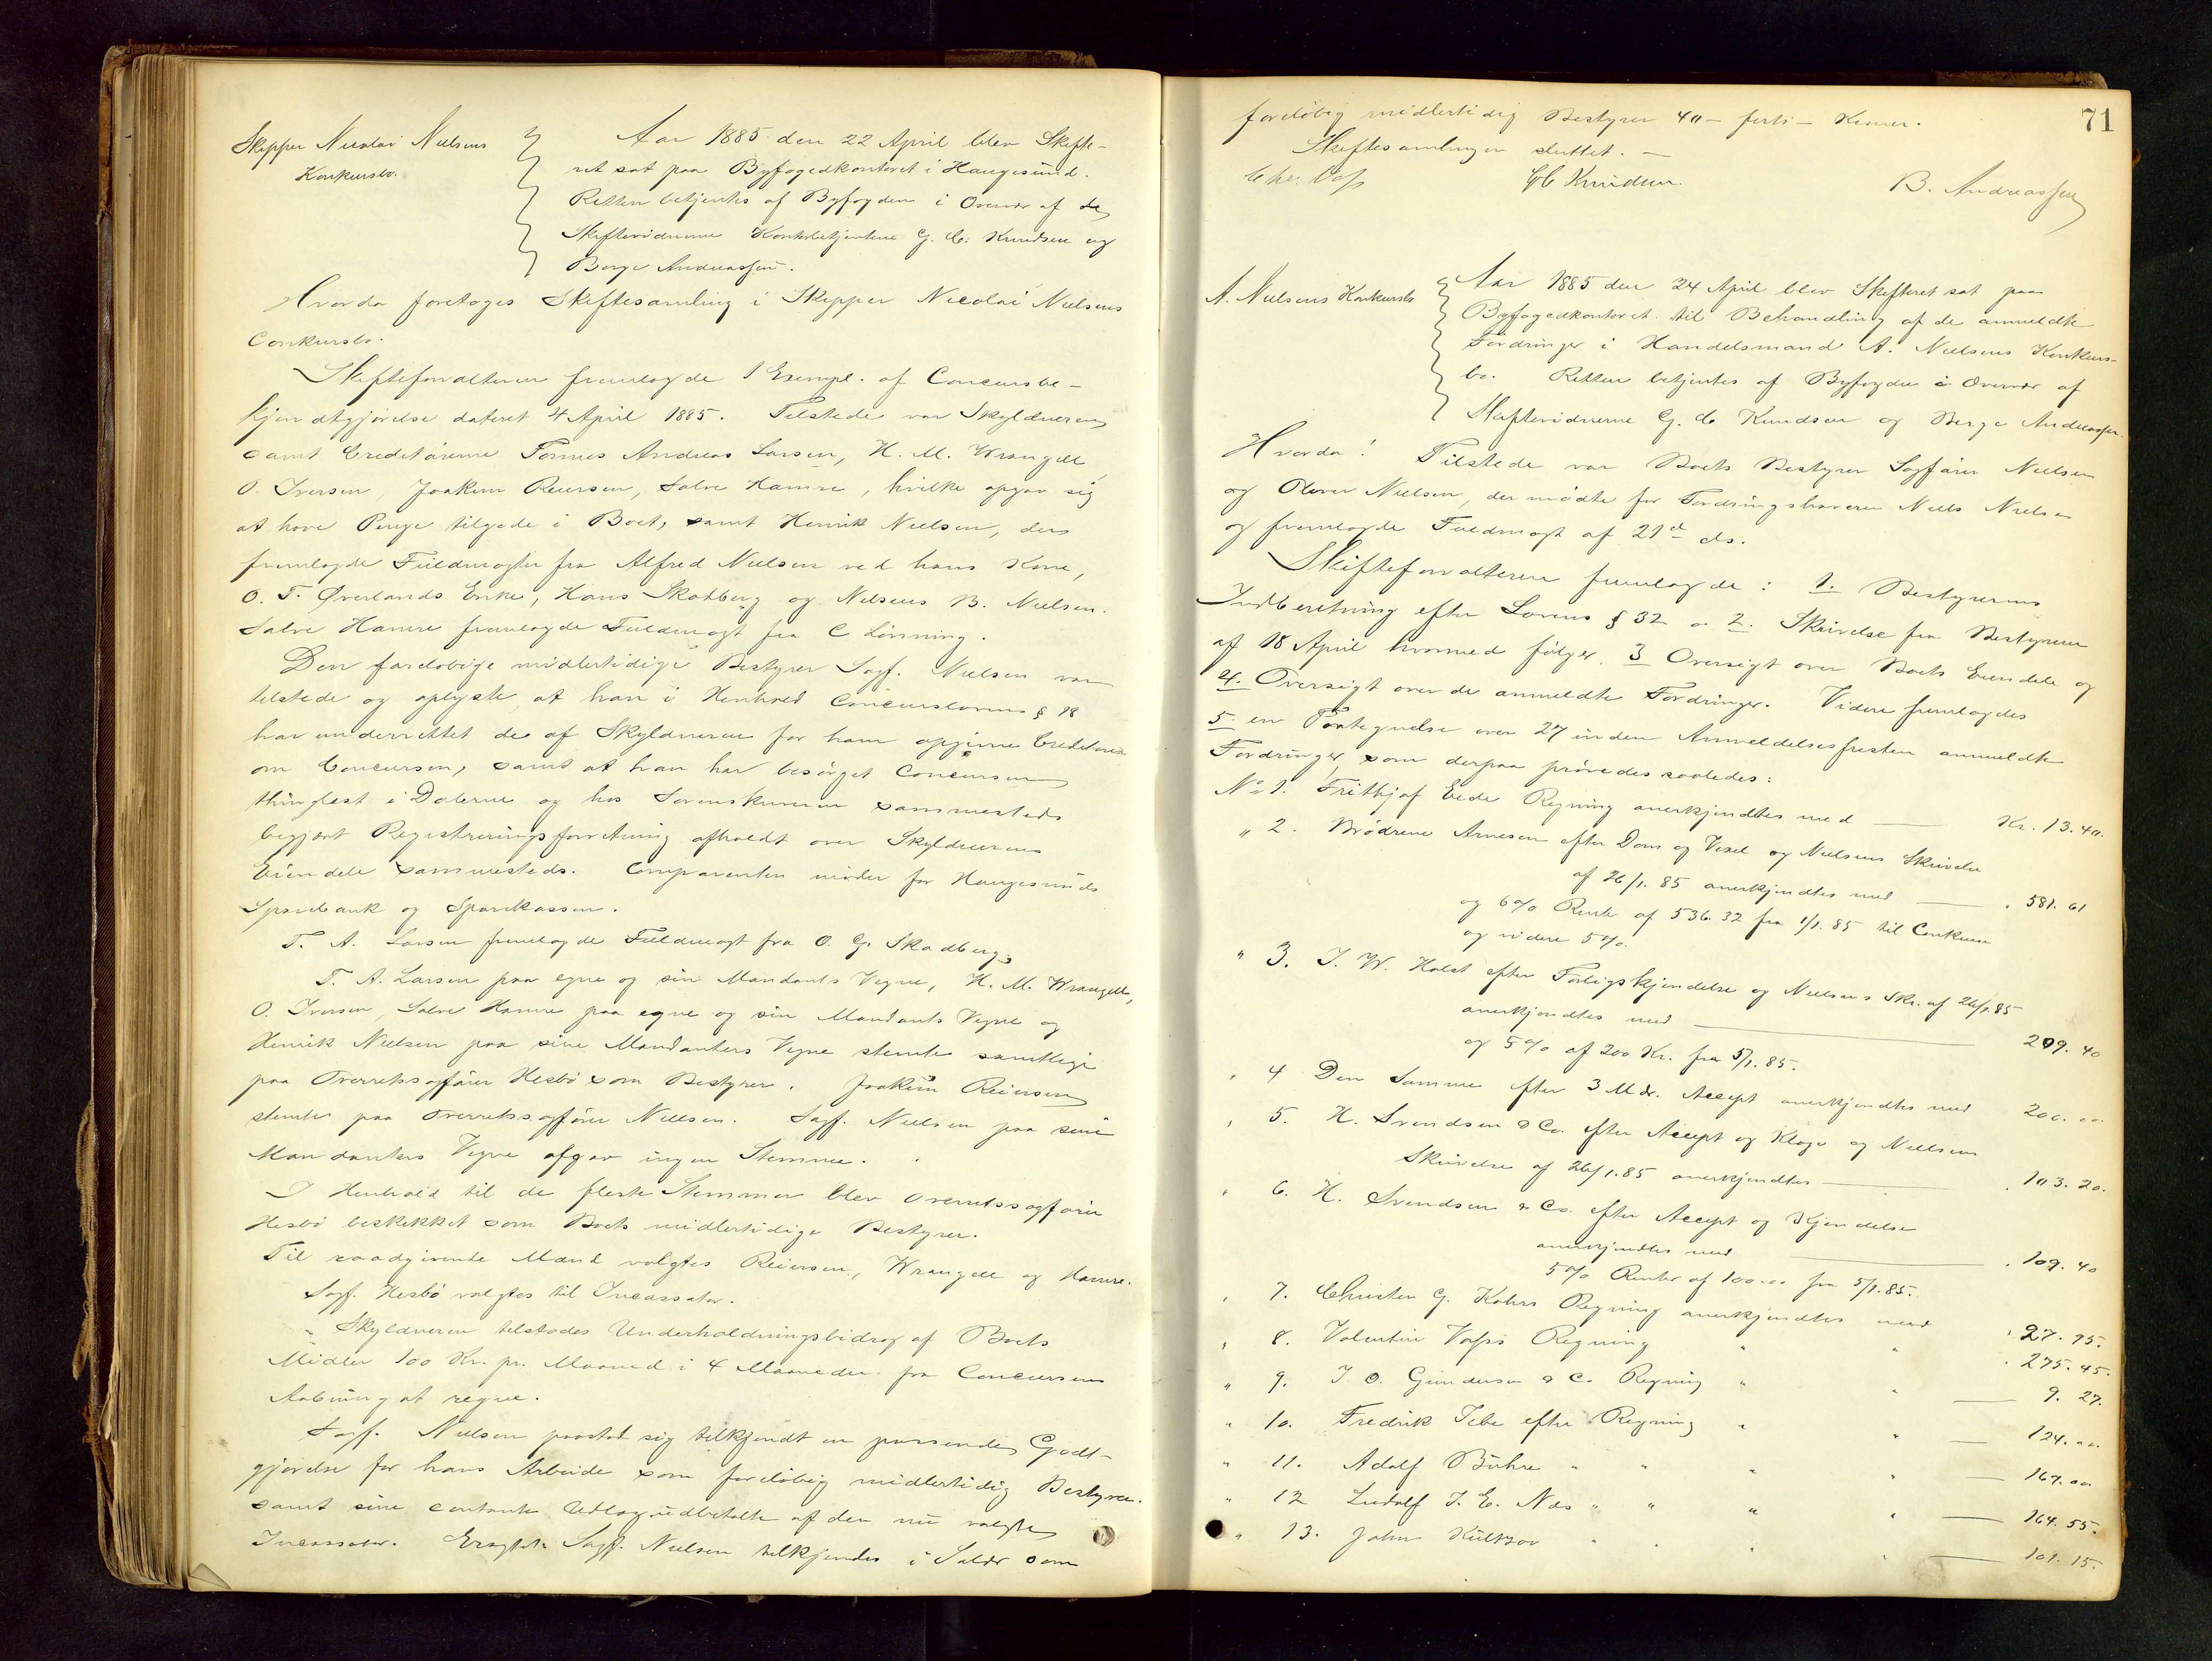 Skipper Nicolai Nielsens
Konkursbo.
Aar 1885 den 22 April blev Skifte-
ret sat paa Byfogedkontoret i Haugesund.
Retten betjentes af Byfogden i Overvær af de
Skiftevidnerne Kontorbetjentene G. C. Knudsen og
Berge Andreassen.
Hvorda foretoges Skiftesamling i Skipper Nicolai Nielsens
Conkursbo.
Skifteforvalteren fremlagde 1 Exempl. af Concursbe-
kjendtgjørelse dateret 4 April 1885. Tilstede var Skyldneren
samt Creditorerne Tønnes Andreas Larsen, H. M. Wrangell
O. Iversen, Joakim Reiersen, Salve Hamre, hvilke opgav sig
at have Penge tilgode i Boet, samt Henrik Nielsen, der
fremlagde Fuldmagter fra Alfred Nielsen ved hans Kone,
O. T. Øverlands Enke, Hans Skadberg og Nilsens B. Nielsen.
Salve Hamre fremlagde Fuldmagt fra C Lönning.
Den foreløbige midlertidige Bestyrer Sagf. Nielsen var
tilstede og oplyste at han i Henhold Concurslovens § 18
har underrettet de af Skyldneren for ham opgivne Creditorer
om Concursen, samt at han har besørget Concursen
thinglæst i Dalerne og hos Sorenskriveren sammesteds
begjært Registreringsforretning afholdt over Skyldnerens
Eiendele sammesteds. Comparenten møder for Haugesunds
Sparebank og Sparekassen.
T. A. Larsen fremlagde Fuldmagt fra O. G. Skadberg.
T. A. Larsen paa egne og sin Mandants Vegne, H. M. Wrangell,
O. Iversen, Salve Hamre paa egne og sin Mandants Vegne og
Henrik Nielsen paa sine Mandanters Vegne stemte samtlige
paa Overretssagfører Hesbö som Bestyrer. Joakim Reiersen
stemte paa Overretssagfører Nielsen. Sagf. Nielsen paa sine
Mandanters Vegne afgav ingen Stemme.
I Henhold til de fleste Stemmer blev Overretssagfører
Hesbö beskikket som Boets midlertidige Bestyrer.
Til raadgivende Mænd valgtes Reiersen, Wrangell og Hamre.
Sagf. Hesbö valgtes til Incassator.
Skyldneren tilstodes Underholdningsbidrag af Boets
Midler 100 Kr. pr. Maaned i 4 Maaneder fra Concursens
Aabning at regne.
Sagf. Nielsen paastod sig tilkjendt en passende Godt-
gjørelse for hans Arbeide som foreløbig midlertidig Bestyrer
samt sine contante Udlæg udbetalte af den nu valgte
Incassator. Sagf. Nielsen tilkjendes i Salær som
71
foreløbig midlertidig Bestyrer 40 – førti – Kroner.
Skiftesamlingen sluttet. –
Chr. Vass GC Knudsen. B. Andreassen
A. Nielsens Konkursbo
Aar 1885 den 24 April blev Skifteret sat paa
Byfogedkontoret til Behandling af de anmeldte
Fordringer i Handelsmand A. Nielsens Konkurs-
bo. Retten betjentes af Byfogden i Overvær af
Skiftevidnerne G. C Knudsen og Berge Andreassen.
Hvorda! Tilstede var Boets Bestyrer Sagfører Nielsen
og Oliver Nielsen, der mødte for Fordringshaveren Niels Nielsen
og fremlagde Fuldmagt af 21d ds.
Skifteforvalteren fremlagde: 1. Bestyrerens
Indberetning efter Lovens § 32 o. 2. Skrivelse fra Bestyreren
af 18 April hvormed følger. 3 Oversigt over Boets Eiendele og
4. Oversigt over de anmeldte Fordringer. Videre fremlagdes
5. en Fortegnelse over 27 inden Anmeldelsesfristen anmeldte
Fordringer, som derpaa prøvedes saaledes:
No 1. Frithjof Eide Regning anerkjendtes med — Kr. 13. 40.
" 2. Brødrene Arnesen efter Dom og Vexel og Nielsens Skrivelse
af 26/1. 85 anerkjendtes med — . 581. 61
og 6% Rente af 536. 32 fra 1/1. 85 til Conkursen
og videre 5%.
" 3. I. W. Holst efter Forligskjendelse og Nielsens Skr. af 26/1.85
anerkjendtes med — 209. 40
og 5% af 200 Kr. fra 5/1. 85.
" 4 Den Samme efter 3 Mdr. Accept anerkjendtes med 200. 00.
" 5. H. Svendsen & Co. efter Accept og Klage og Nielsens
Skrivelse af 26/1. 85 anerkjendtes — . 103. 20.
" 6. H. Svendsen & Co. efter Accept og Kjendelse
anerkjendtes med — . 109. 40
5% Renter af 100.00 fra 5/1. 85.
" 7. Christen G. Kahrs Regning anerkjendtes med . 27. 95.
" 8. Valentin Vass Regning " " . 275. 45.
" 9. I. O. Gundersen & Co. Regning " " — 9. 27.
" 10. Fredrik Tebe efter Regning " " — 124. 00.
" 11. Adolf Bühre " " " " — 167. 00
" 12 Ludolf J. E. Næs " " " " — 164. 55.
" 13. John " " " " — 101. 15.